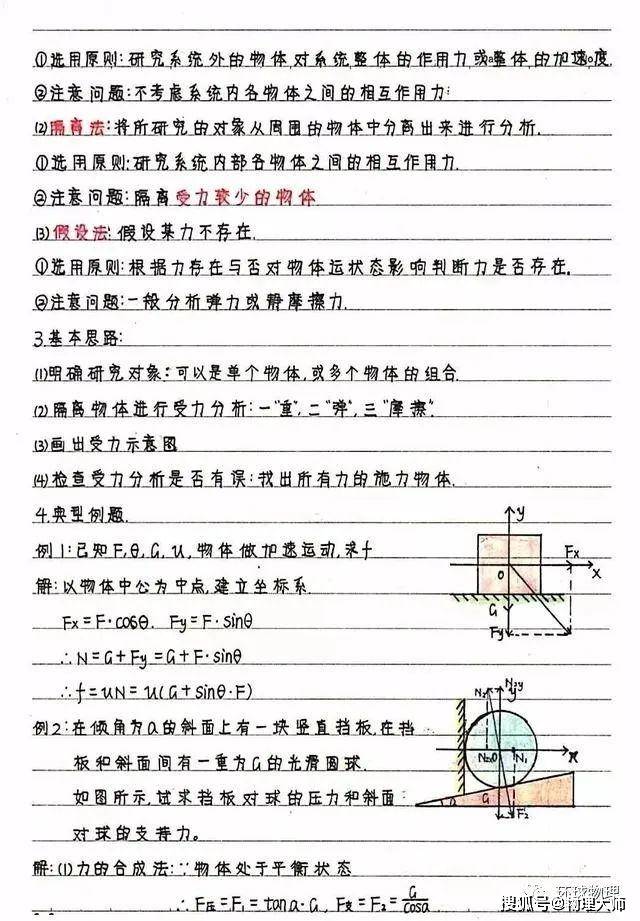 ①选用原则:研究系统外的物体对系统整体的作用力或整体的加速度.
②注意问题:不考虑系统内各物体之间的相互作用力.
(2)隔离法:将所研究的对象从周围的物体中分离出来进行分析.
①选用原则:研究系统内部各物体之间的相互作用力.
②注意问题:隔离受力较少的物体
(3)假设法:假设某力不存在.
①选用原则:根据力存在与否对物体运状态影响判断力是否存在.
②注意问题:一般分析弹力或静摩擦力.
3.基本思路:
(1)明确研究对象:可以是单个物体,或多个物体的组合.
(2)隔离物体进行受力分析:一"重",二"弹",三"摩擦".
(3)画出受力示意图
(4)检查受力分析是否有误:找出所有力的施力物体.
4.典型例题.
例1:已知F,θ,G,u,物体做加速运动,求f
解:以物体中心为中点,建立坐标系.
Fx=F·cosθ. Fy=F·sinθ
∴N=G+Fy=G+F·sinθ
∴f=uN=u(G+sinθ·F)
y
Fx
x
O
G
Fy
例2:在倾角为α的斜面上有一块竖直挡板,在挡
板和斜面间有一重为G的光滑圆球.
如图所示,试求挡板对球的压力和斜面
对球的支持力。
N₂
N₂y
y
N₁
x
O
G
F₂
α
解:(1)力的合成法:∵物体处于平衡状态
∴F压=F₁=tanα·G, F支=F₂=G/cosα
环球物理
搜狐号@物理大师